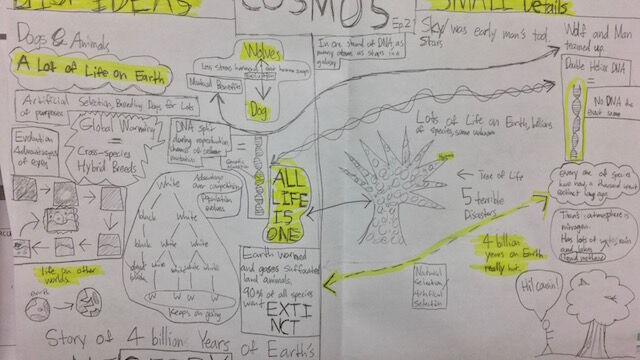 BIG IDEAS
COSMOS
Ep.2
SMALL Details
Dogs & Animals
A Lot of Life on Earth
Artificial Selection, Breeding Dogs for Lots
of purposes
Evolution
Advantages
of eyes
Global Warming
=
Cross-species
Hybrid Breeds
Wolves
Less stress hormones
Mutual Benefits
Dog
DNA split
during reproduction
chance of
=
ALL
LIFE
IS
ONE
White
Advantage
over competition
Population
evolves
black White
black White White
W W W W
Keeps on going
life on other
worlds.
earth
Earth warmed
and gases suffocated
land animals.
90% of all species
went EXTI
NCT
Story of 4 billion Years of Earth's
In one strand of DNA, as
many atoms as stars in a
galaxy.
Sky/
Stars
was early man's tool.
Wolf and Man
teamed up.
Double Helix DNA
=
No DNA the
exact same
Lots of Life on Earth, billions
of species, some unknown
Tree of Life
5 terrible
Disasters
Every one of species
have now, a thousand years
extinct long ago.
Titan's atmosphere is
nitrogen.
Has lots of
rain
and lakes
liquid methane
4 billion
years on Earth
really hot.
Natural
Selection/
Artificial
Selection
Hi! cousin!